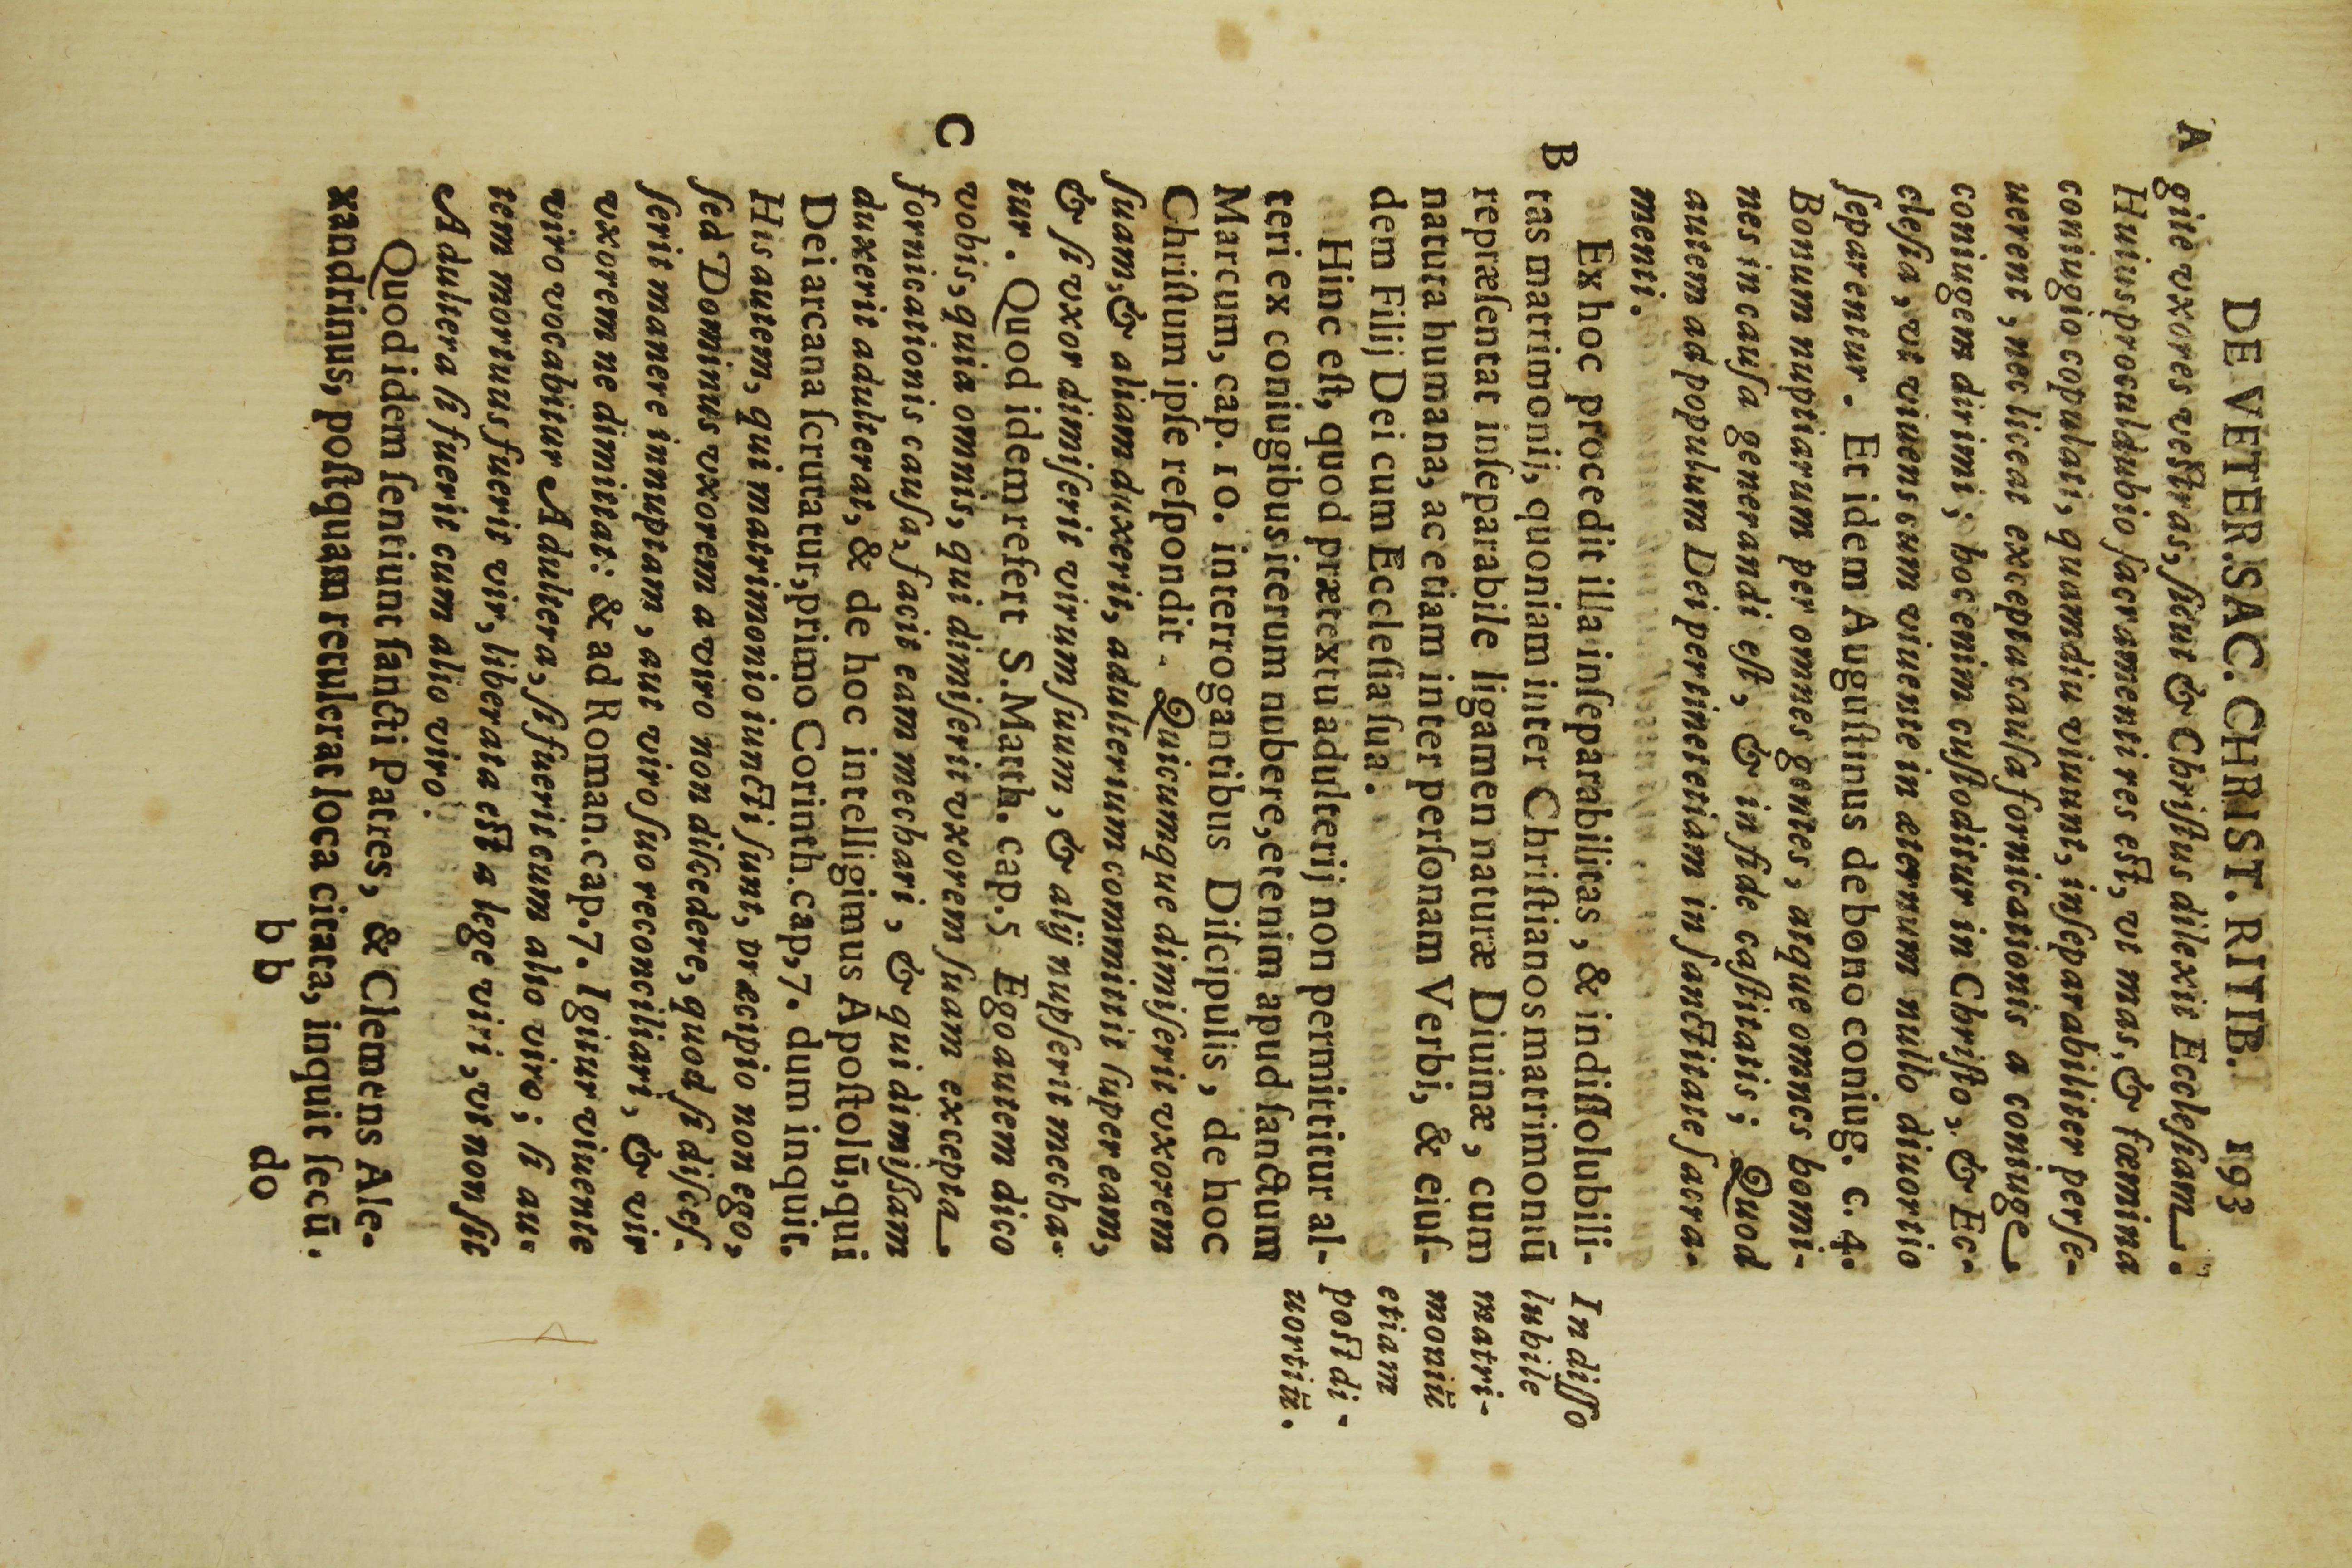 DE VETER. SAC. CHRIST. RITIB. 193
A gite vxores vestras, sicut & Christus dilexit Ecclesiam.
Huius proculdubio sacramenti res est, vt mas, & fœmina
coniugio copulati, quamdiu viuunt, inseparabiliter perse-
uerent, nec liceat excepta causa fornicationis a coniuge
coniugem dirimi; hoc enim custoditur in Christo, & Ec-
clesia, vt viuens cum viuente in æternum nullo diuortio
separentur. Et idem Augustinus de bono coniug. c. 4.
Bonum nuptiarum per omnes gentes, atque omnes homi-
nes in causa generandi est, & in fide castitatis; Quod
autem ad populum Dei pertinet etiam in sanctitate sacra-
menti.
Ex hoc procedit illa inseparabilitas, & indissolubili-
B tas matrimonij, quoniam inter Christianos matrimoniū
repræsentat inseparabile ligamen naturæ Diuinæ, cum
natura humana, ac etiam inter personam Verbi, & eius-
dem Filij Dei cum Ecclesia sua.
Hinc est, quod prætextu adulterij non permittitur al-
teri ex coniugibus iterum nubere, etenim apud sanctum
Marcum, cap. 10. interrogantibus Discipulis, de hoc
Christum ipse respondit. Quicumque dimiserit vxorem
suam, & aliam duxerit, adulterium committit super eam,
& si vxor dimiserit virum suum, & alij nupserit mecha-
tur. Quod idem refert S. Matth. cap. 5 Ego autem dico
C vobis, quia omnis, qui dimiserit vxorem suam excepta
fornicationis causa, facit eam mechari, & qui dimissam
duxerit adulterat, & de hoc intelligimus Apostolū, qui
Dei arcana scrutatur, primo Corinth. cap, 7. dum inquit.
His autem, qui matrimonio iuncti sunt, præcipio non ego,
sed Dominus vxorem a viro non discedere, quod si disces-
serit manere innuptam, aut viro suo reconciliari, & vir
vxorem ne dimitat: & ad Roman. cap. 7. Igitur viuente
viro vocabitur Adultera, si fuerit cum alio viro; si au-
tem mortuus fuerit vir, liberata est a lege viri, vt non sit
Adultera si fuerit cum alio viro.
Quod idem sentiunt sancti Patres, & Clemens Ale-
xandrinus, postquam retulerat loca citata, inquit secū.
bb do
Indisso
lubile
matri-
moniū
etiam
post di-
uortiū.